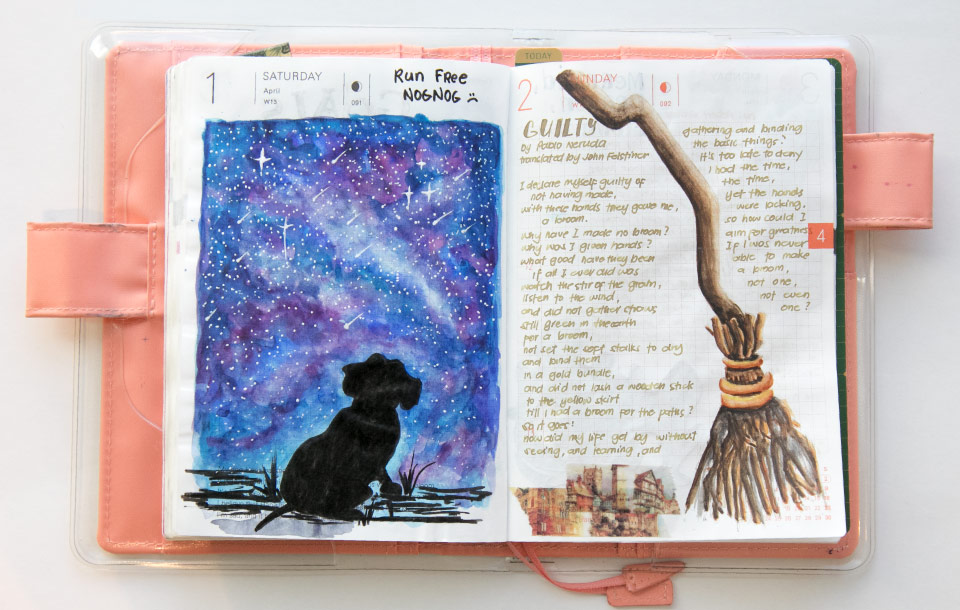 1
SATURDAY
April
091
Run Free
NOGNOG
TODAY
2
NDAY
092
GUILTY
by Pablo Neruda
translated by John Felstiner
I declare myself guilty of
not having made,
with these hands they gave me,
a broom.
Why have I made no broom?
Why was I given hands?
What good have they been
if all I ever did was
watch the stir of the grain,
listen to the wind,
and did not gather straws
still green in the earth
for a broom,
not set the soft stalks to dry
and bind them
in a gold bundle,
and did not lash a wooden stick
to the yellow skirt
till I had a broom for the paths?
So it goes!
How did my life get by without
seeing, and learning, and
gathering and binding
the basic things?
It's too late to deny
I had the time,
the time,
yet the hands
were lacking,
so how could I
aim for greatness
If I was never
able to make
a broom,
not one,
not even
one?
4